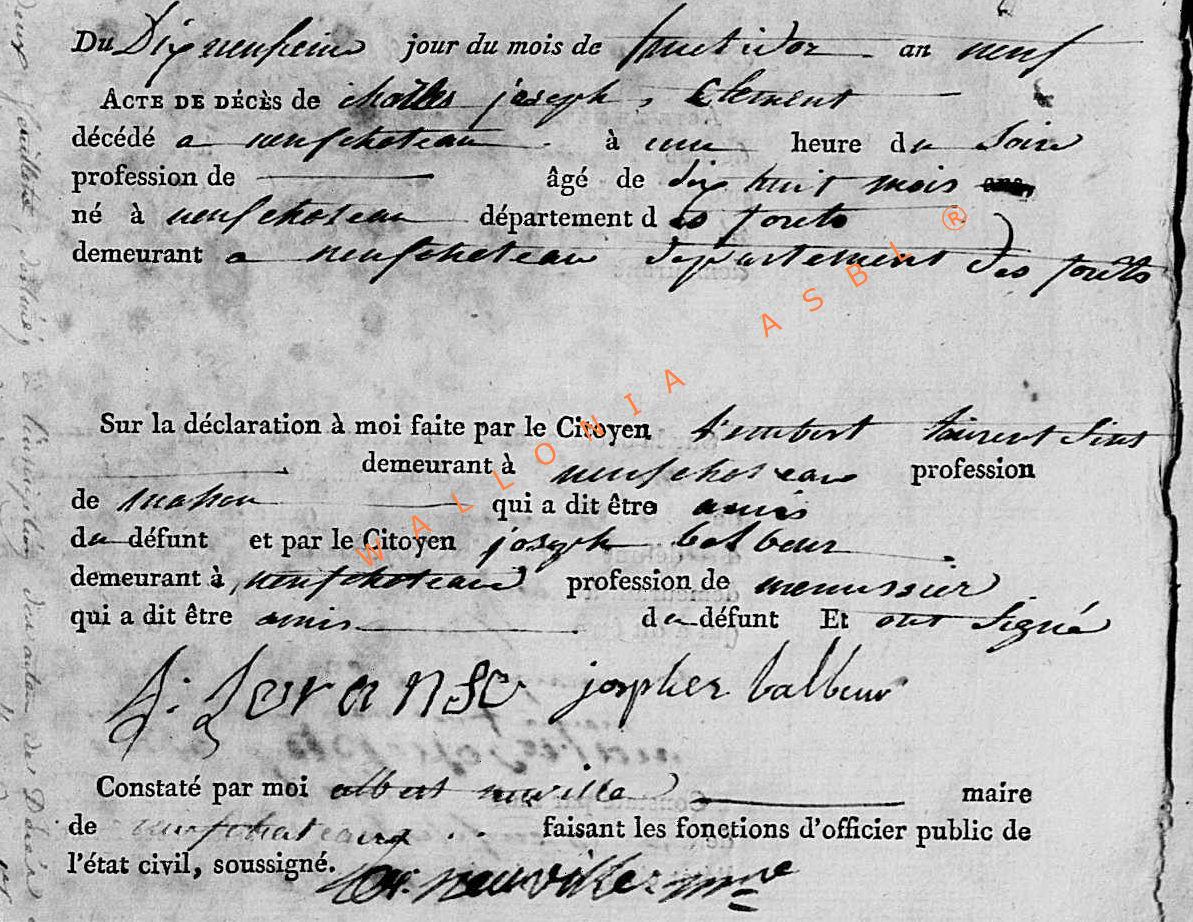 Du Dix neufvieme jour du mois de fructidor an neuf
ACTE DE DÉCÈS de charles joseph, Clement
décédé a neufchateau à une heure du Soire
profession de âgé de dix huit mois ans
né à neufchateau département des forets
demeurant a neufchateau departement des forêts
Sur la déclaration à moi faite par le Citoyen Lambert laurent
demeurant à neufchateau profession
de masson qui a dit être amis
du défunt et par le Citoyen joseph balbeur
demeurant à neufchateau profession de menussier
qui a dit être amis du défunt Et ont Signé
joseph balbeur
Constaté par moi albert neuville maire
de neufchateau faisant les fonctions d'officier public de
l'état civil, soussigné.
neuville
WALLONIA ASBL ®